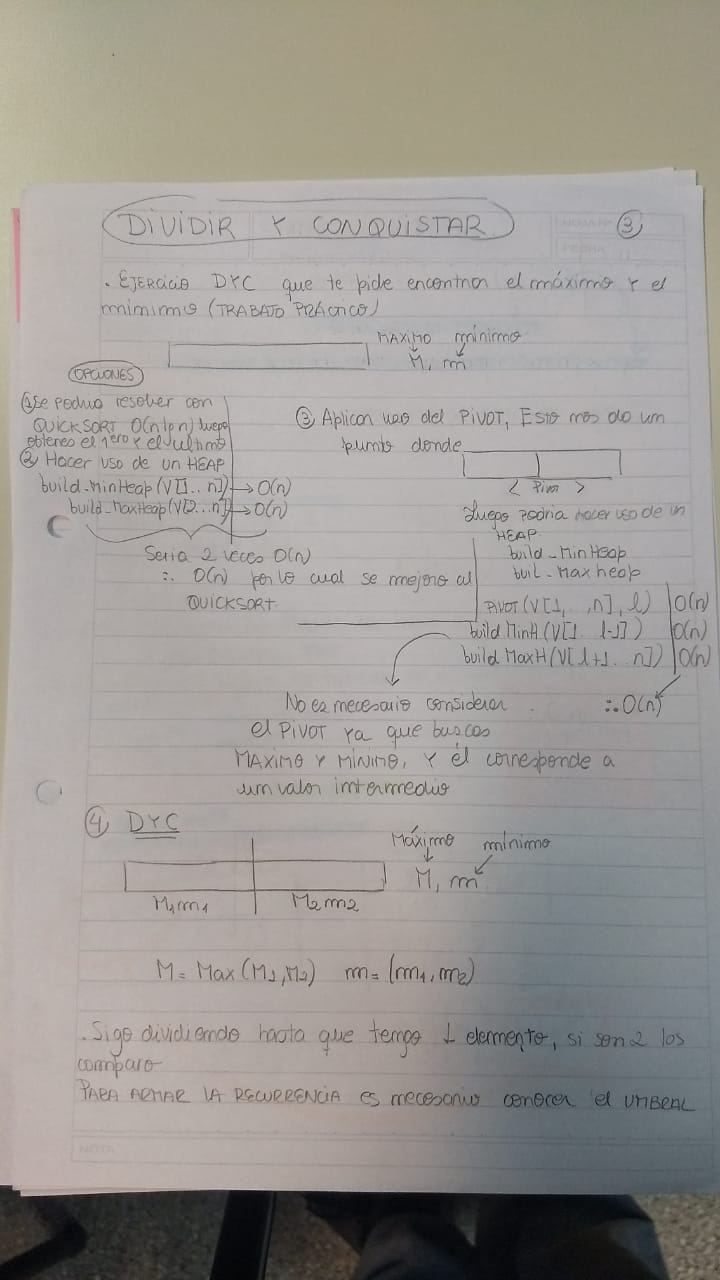 DIVIDIR Y CONQUISTAR
3
. EJERCICIO DYC que te pide encontrar el máximo Y el
mínimo (TRABAJO PRÁCTICO)
MAXIMO mínimo
M, m
OPCIONES
① Se podria resolver con
QUICKSORT O(n lg n) luego
obtenes el 1ero y el ultimo
② Hacer uso de un HEAP
build-MinHeap(V[1..n]) → O(n)
build-MaxHeap(V[2...n]) → O(n)
Seria 2 veces O(n)
∴ O(n) por lo cual se mejora al
QUICKSORT
③ Aplicar uso del PIVOT, Esto nos da un
punto donde
< Pivot >
Luego podria hacer uso de un
HEAP.
build-MinHeap
buil-Maxheap
PIVOT (V[1, ,n], l) O(n)
build MinH (V[1 l-1]) O(n)
build MaxH(V[l+1..n]) O(n)
∴ O(n)
No es necesario considerar
el PIVOT ya que buscas
MAXIMO Y MÍNIMO, Y él corresponde a
un valor intermedio
④ DYC
Máximo mínimo
M, m
M1 m1 M2 m2
M = Max (M1, M2) m = (m1, m2)
. Sigo dividiendo hasta que tengo 1 elemento, si son 2 los
comparo
PARA ARMAR LA RECURRENCIA es necesario conocer el UMBRAL
NOTA